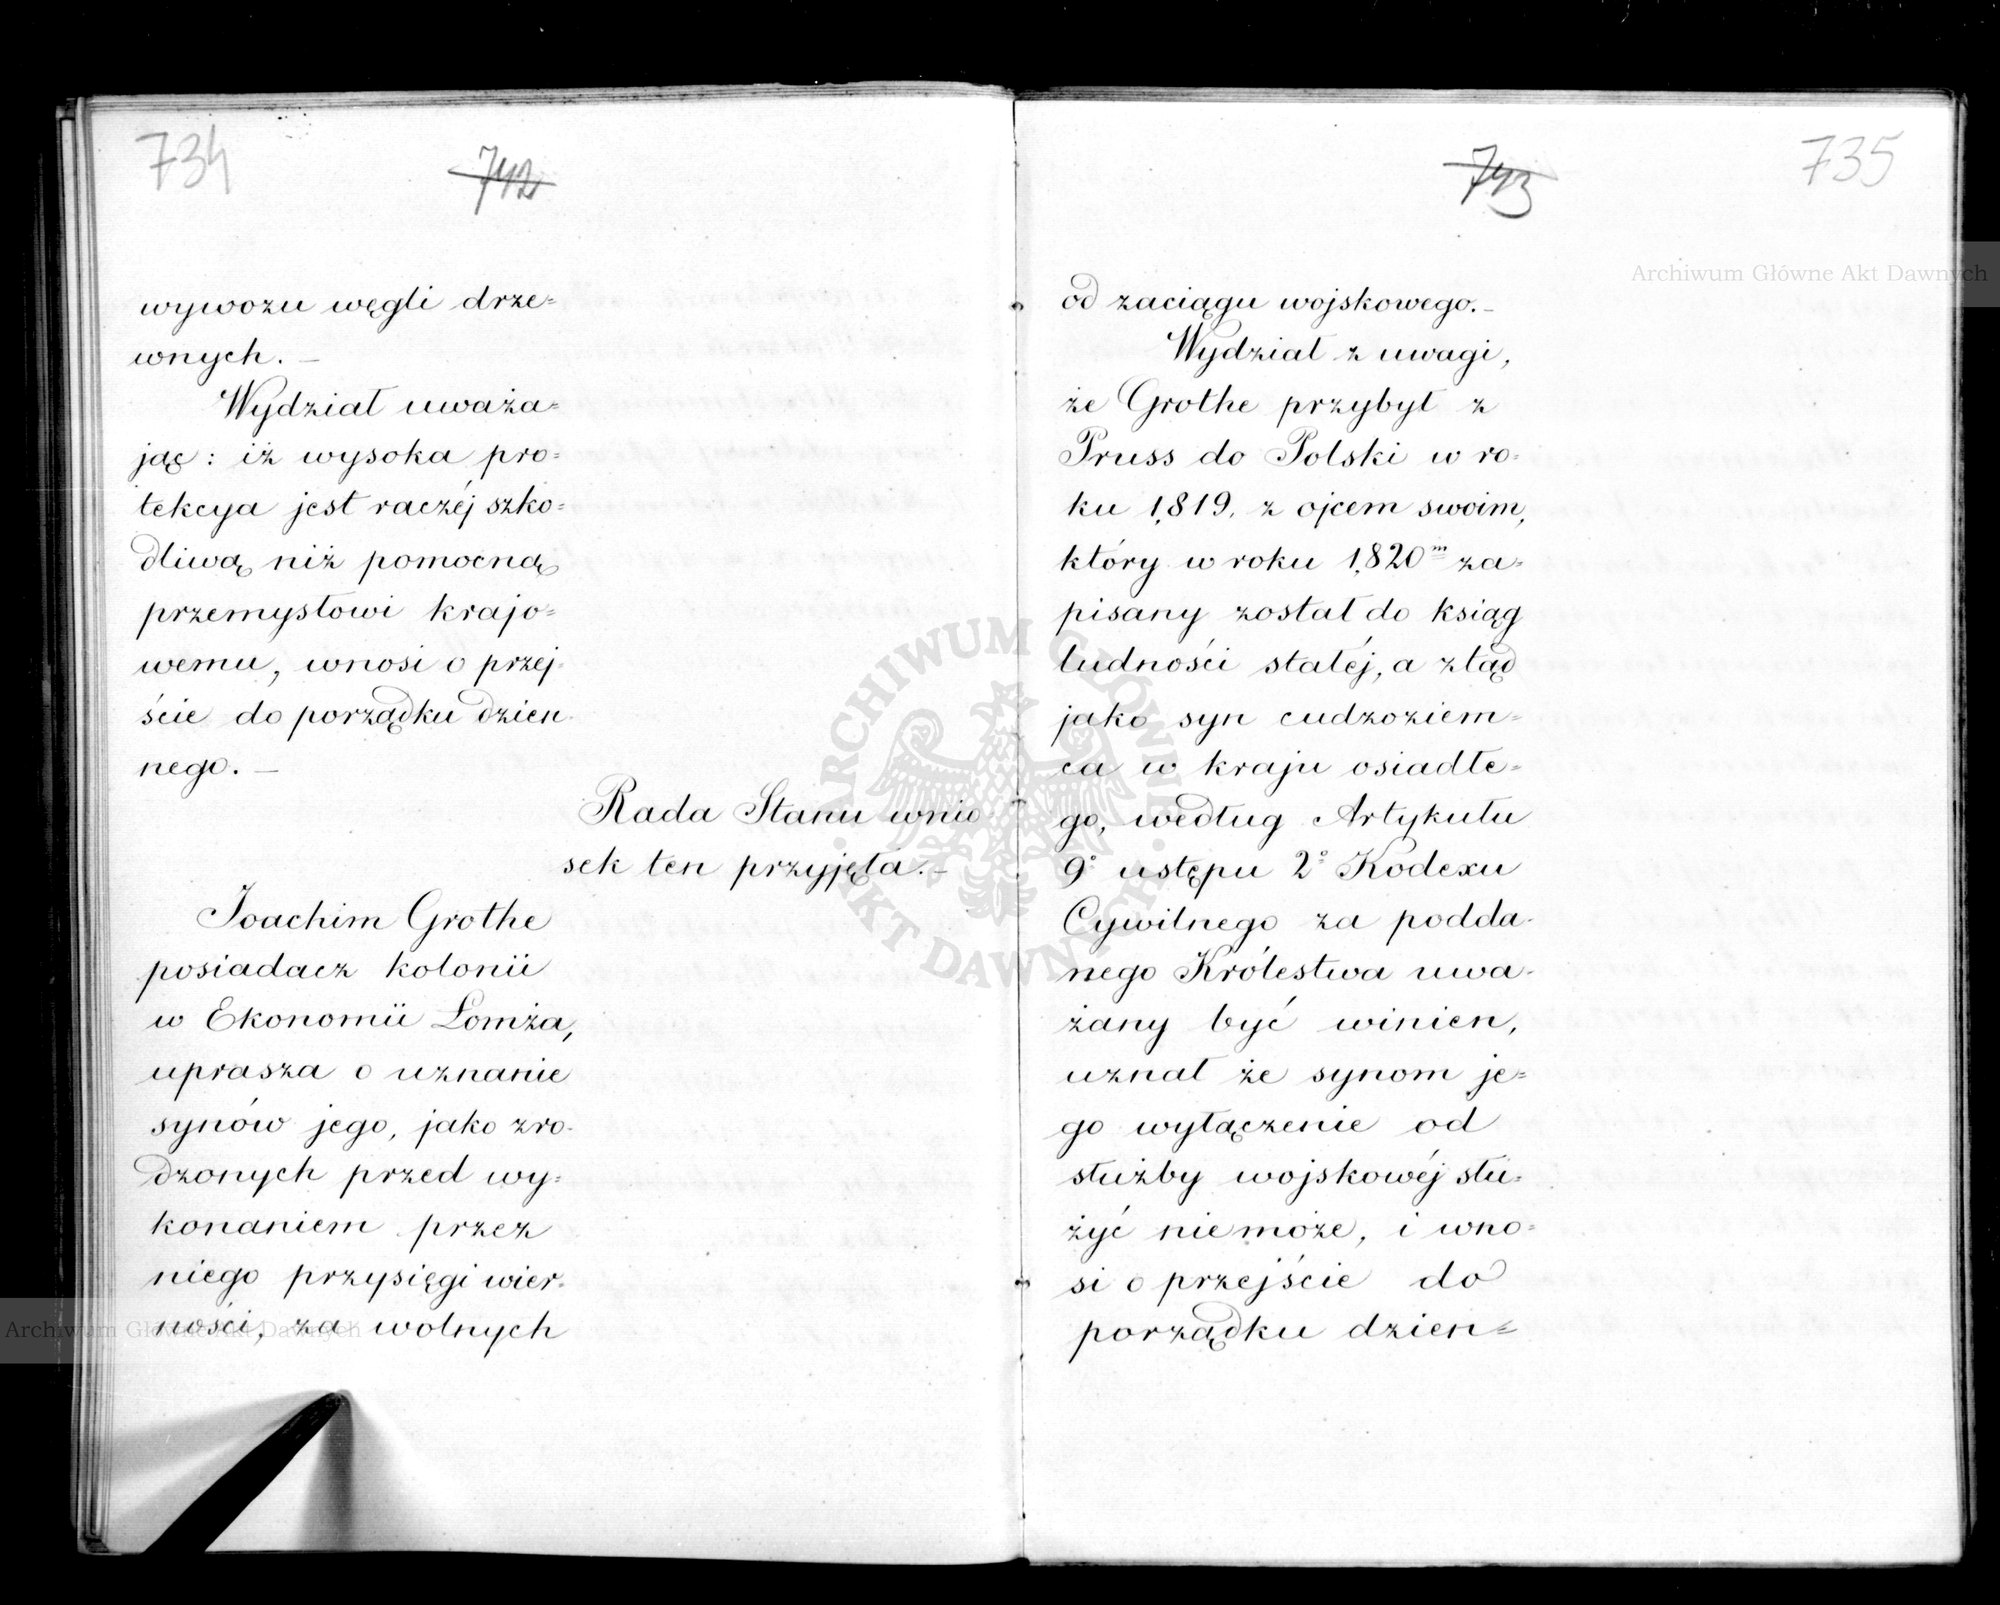 734
742
wywozu węgli drze=
wnych. —
Wydział uważa=
jąc: iż wysoka pro=
tekcya jest raczéj szko=
dliwą niż pomocną
przemysłowi krajo=
wemu, wnosi o przej-
ście do porządku dzien-
nego. —
Rada Stanu wnio-
sek ten przyjęła. —
Joachim Grothe
posiadacz kolonii
w Ekonomii Łomża,
uprasza o uznanie
synów jego, jako zro-
dzonych przed wy-
konaniem przez
niego przysięgi wier-
ności, za wolnych
743
735
od zaciągu wojskowego. —
Wydział z uwagi,
że Grothe przybył z
Pruss do Polski w ro-
ku 1,819, z ojcem swoim,
który w roku 1,820m za-
pisany został do ksiąg
ludności stałéj, a ztąd
jako syn cudzoziem=
ca w kraju osiadłe=
go, według Artykułu
9° ustępu 2° Kodexu
Cywilnego za podda-
nego Królestwa uwa-
żany być winien,
uznał że synom je=
go wyłączenie od
służby wojskowéj słu-
żyć nie może, i wno=
si o przejście do
porządku dzien=
Archiwum Główne Akt Dawnych
ARCHIWUM GŁÓWNE · AKT DAWNYCH ·
Archiwum Główne Akt Dawnych